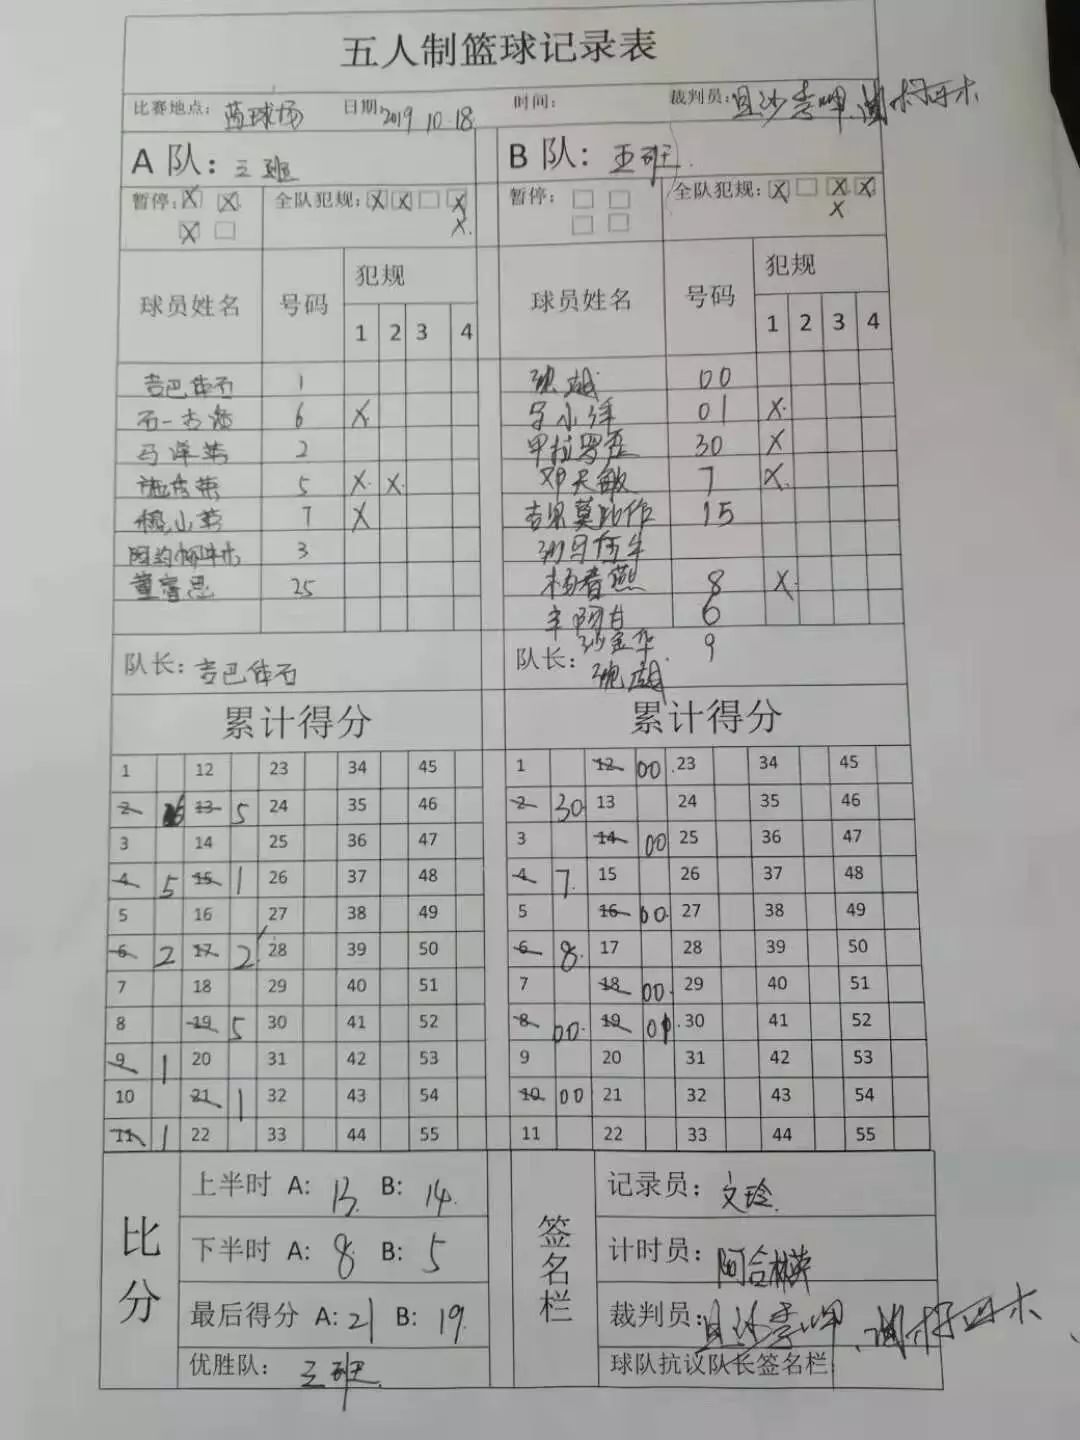 五人制篮球记录表
比赛地点：篮球场 日期 2019 10.18 时间： 裁判员：
A 队：三班 B 队：五班
暂停： 全队犯规： 暂停： 全队犯规：
X
X
球员姓名 号码 犯规 球员姓名 号码 犯规
1 2 3 4 1 2 3 4
吉巴体石 1 00
6 X 01 X
2 甲拉罗 30 X
5 X X 邓天敏 7 X
杨小英 7 X 吉果莫 作 15
3
董睿思 25 杨春燕 8 X
6
队长：吉巴体石 队长： 沙金华 9
累计得分 累计得分
1 12 23 34 45 1 12 00 23 34 45
2 6 13 5 24 35 46 2 30 13 24 35 46
3 14 25 36 47 3 14 00 25 36 47
4 5 15 1 26 37 48 4 7 15 26 37 48
5 16 27 38 49 5 16 00 27 38 49
6 2 17 2 28 39 50 6 8 17 28 39 50
7 18 29 40 51 7 18 00 29 40 51
8 19 5 30 41 52 8 00 19 01 30 41 52
9 1 20 31 42 53 9 20 31 42 53
10 21 1 32 43 54 10 00 21 32 43 54
11 1 22 33 44 55 11 22 33 44 55
比分 签名栏
上半时 A: 13 B: 14 记录员：文玲
下半时 A: 8 B: 5 计时员：阿合
最后得分 A: 21 B: 19 裁判员：
优胜队：三班 球队抗议队长签名栏